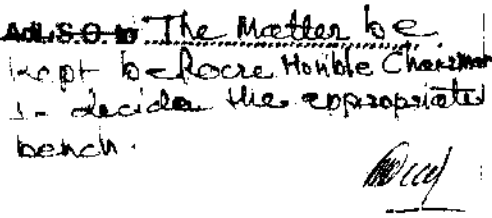 Adl. S.O. to The Matter be
kept before Hon'ble Chairman
to decide the appropriate
bench.